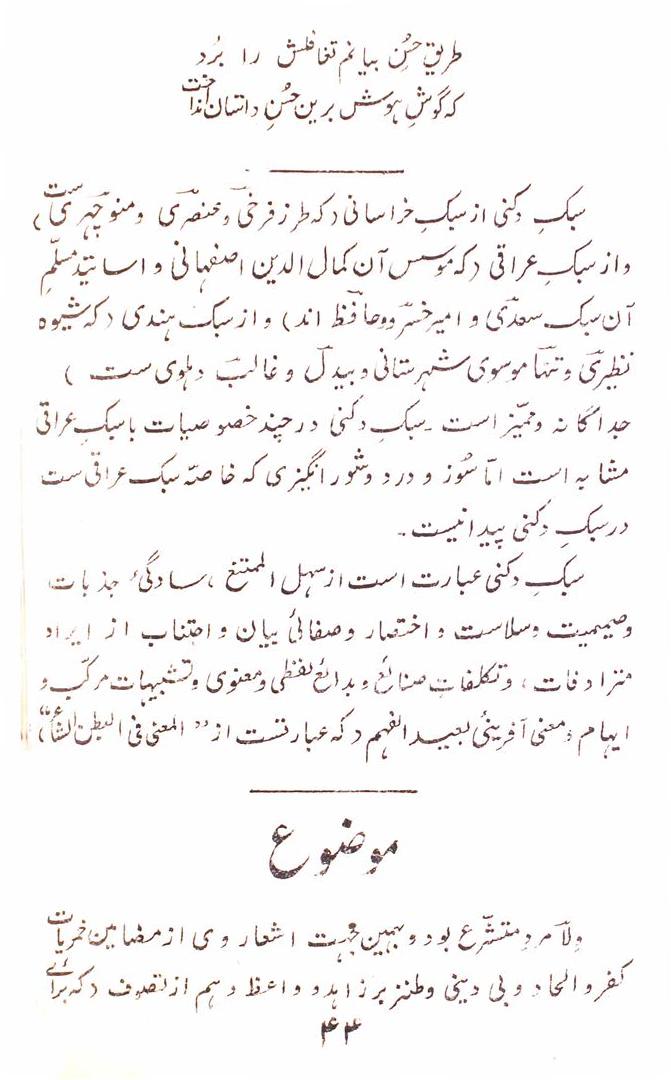 طریقِ حسنِ بیانم تغافلش را بُرد
که گوشِ هوش برین حسنِ داستان انداخت
سبکِ دکنی از سبکِ خراسانی (که طرز فرخی و عنصری و منوچهری ست)
و از سبکِ عراقی (که موسس آن کمال الدین اصفهانی و اساتیذ مسلّمِ
آن سبک سعدی و امیر خسرو و حافظ اند) و از سبک هندی (که شیوه
نظیری و تنها موسوی شهرستانی و بیدل و غالب دهلوی ست)
جداگانه و ممیّز است ـ سبکِ دکنی در چند خصوصیات با سبکِ عراقی
مشابه است امّا سُوز و درد و شور انگیزی که خاصهٔ سبک عراقی ست
در سبکِ دکنی پیدا نیست ـ
سبکِ دکنی عبارت است از سهل الممتنع ، سادگیٔ جذبات
وصمیمیت و سلاست و اختصار و صفائیٔ بیان و اجتناب از ایراد
مترادفات ، و تکلفاتِ صنائع و بدائع لفظی و معنوی و تشبیهات مرکّب و
ایهام و معنی آفرینیٔ بعید الفهم (که عبارتست از "المعنی فی البطن الشاعر")
موضوع
ولا مردِ متشرّع بود و بهمین جهت اشعار وی از مضامین خمریات
کفر و الحاد و بی دینی و طنز بر زاهد و واعظ و هم از تصوف (که برائے
۴۴